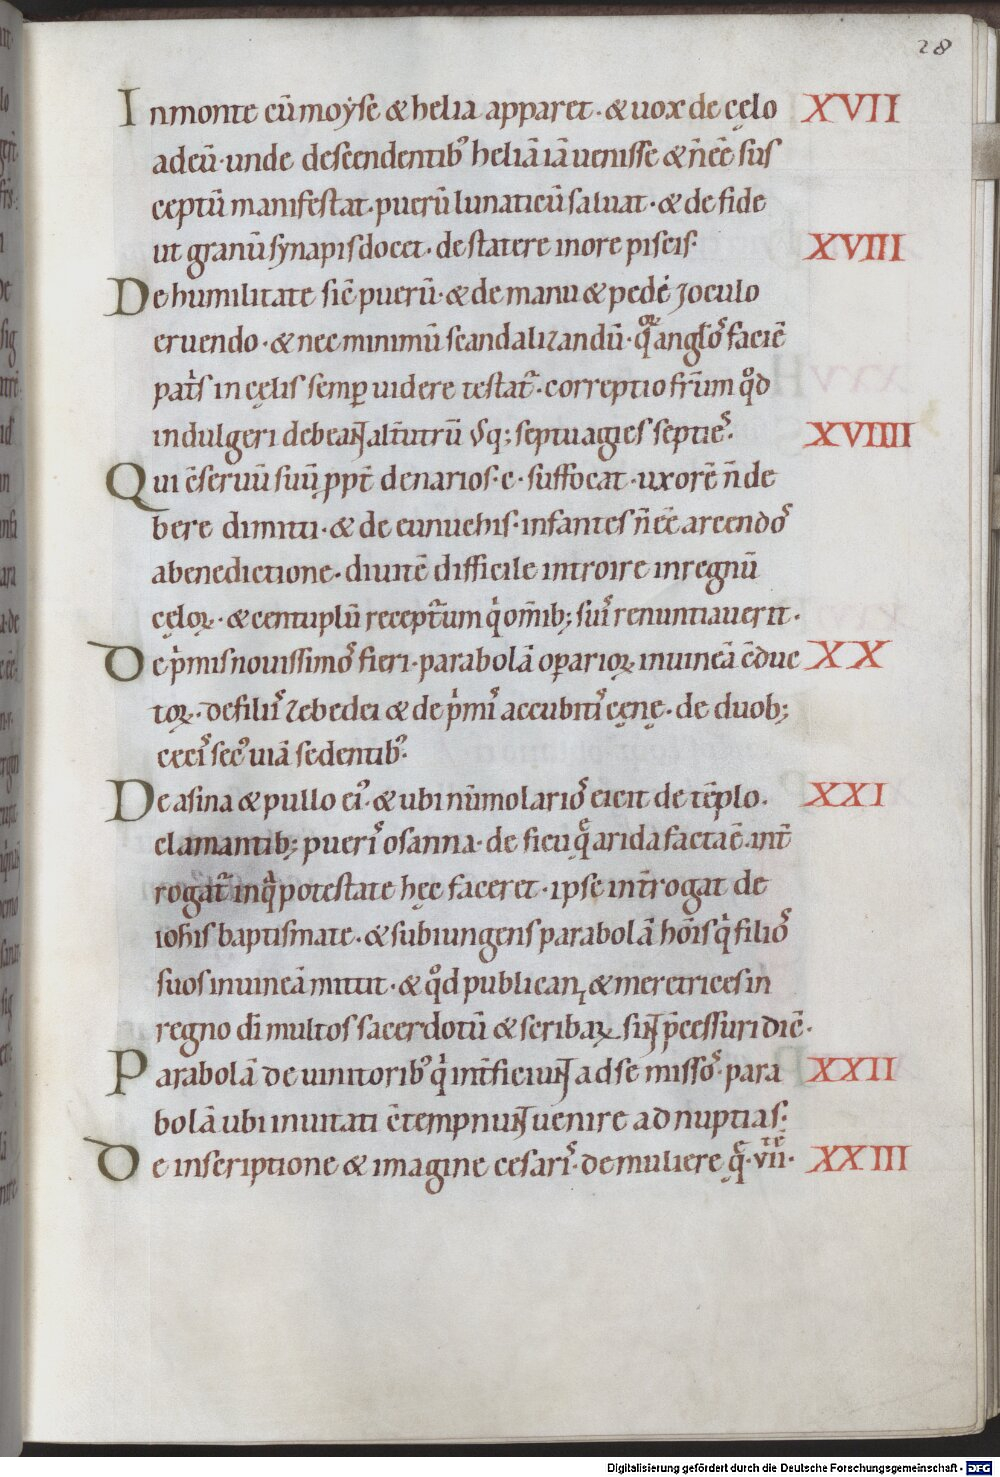 28
Inmonte cū moẏse & helia apparet · & uox de cęlo XVII
adeū · unde descendentibꝰ heliā iā uenisse & n̄ eē sus
ceptū manifestat · puerū lunaticū saluat · & de fide
ut granū synapis docet · de statere in ore piscis · XVIII
De humilitate sic̄ puerū · & de manu & pede ⁊ oculo
eruendo · & nec minimū scandalizandū · qꝛ̄ anglōꝝ faciē
pat̄s in cęlis semꝑ uidere testat̄ · correptio fr̄um qͦd
indulgeri debeant alt̄utrū usq; septuagies septiēs ·
XVIIII
Qui c̄seruū suū ꝓpt̄ denarios · c · suffocat · uxorē n̄ de
bere dimitti · & de eunuchis · infantes n̄ eē arcendos
a benedictione · diuitē difficile introire in regnū
cęloꝝ · & centuplū recept̄um qͥ omīb; suis renuntiauerit ·
De pͥmis nouissimos fieri · parabolā oꝑarioꝝ in uineā c̄duc XX
toꝝ · de filiis zebedei & de pͥmis accubitis cęnę · de duob;
cecis sec̄ uiā sedentibꝰ ·
De asina & pullo eiꝰ · & ubi nūmolarios eicit de tēplo · XXI
clamantib; pueris osanna · de ficu quę arida facta ē · int̄
rogat̄ in qͣ potestate hęc faceret · ipse int̄rogat de
ioh̄is baptismate · & subiungens parabolā hōis qͥ filios
suos in uineā mittit · & qͦd publicani & meretrices in
regno dī multos sacerdotū & scribaꝝ sunt p̄cessuri dic̄ ·
Parabolā de uinitoribꝰ qͥ int̄ficiunt ad se missos · para XXII
bolā ubi inuitati c̄tempnunt uenire ad nuptias ·
De inscriptione & imagine cesaris · de muliere quę · vii · XXIII
Digitalisierung gefördert durch die Deutsche Forschungsgemeinschaft - DFG